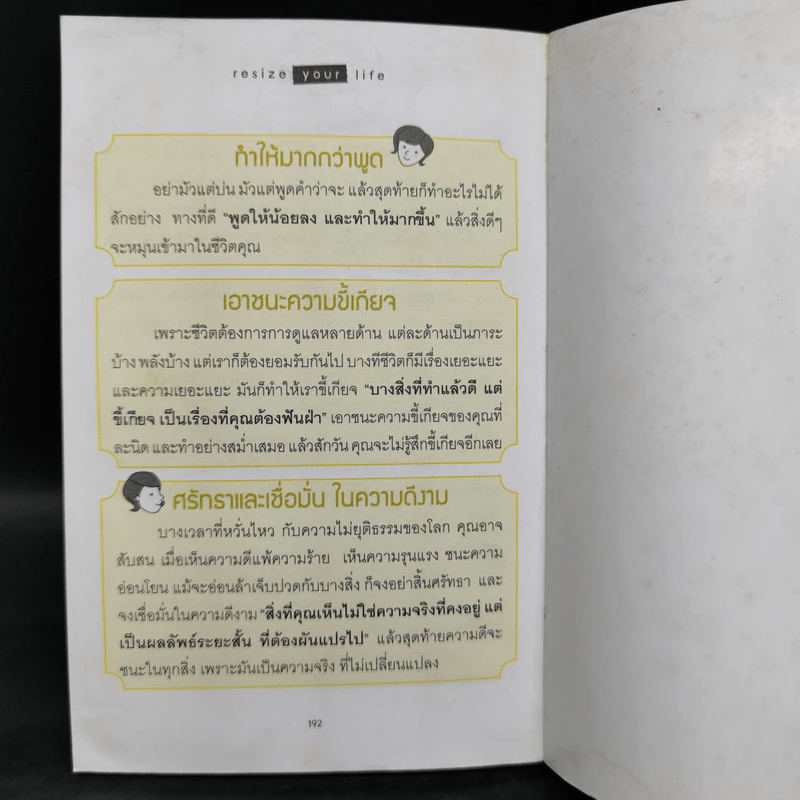 resize your life
ทำให้มากกว่าพูด
อย่ามัวแต่บ่น มัวแต่พูดคำว่าจะ แล้วสุดท้ายก็ทำอะไรไม่ได้
สักอย่าง ทางที่ดี "พูดให้น้อยลง และทำให้มากขึ้น" แล้วสิ่งดีๆ
จะหมุนเข้ามาในชีวิตคุณ
เอาชนะความขี้เกียจ
เพราะชีวิตต้องการการดูแลหลายด้าน แต่ละด้านเป็นภาระ
บ้าง พลังบ้าง แต่เราก็ต้องยอมรับกันไป บางทีชีวิตก็มีเรื่องเยอะแยะ
และความเยอะแยะ มันก็ทำให้เราขี้เกียจ "บางสิ่งที่ทำแล้วดี แต่
ขี้เกียจ เป็นเรื่องที่คุณต้องฟันฝ่า" เอาชนะความขี้เกียจของคุณที่
ละนิด และทำอย่างสม่ำเสมอ แล้วสักวัน คุณจะไม่รู้สึกขี้เกียจอีกเลย
ศรัทธาและเชื่อมั่น ในความดีงาม
บางเวลาที่หวั่นไหว กับความไม่ยุติธรรมของโลก คุณอาจ
สับสน เมื่อเห็นความดีแพ้ความร้าย เห็นความรุนแรง ชนะความ
อ่อนโยน แม้จะอ่อนล้าเจ็บปวดกับบางสิ่ง ก็จงอย่าสิ้นศรัทธา และ
จงเชื่อมั่นในความดีงาม "สิ่งที่คุณเห็นไม่ใช่ความจริงที่คงอยู่ แต่
เป็นผลลัพธ์ระยะสั้น ที่ต้องผันแปรไป" แล้วสุดท้ายความดีจะ
ชนะในทุกสิ่ง เพราะมันเป็นความจริง ที่ไม่เปลี่ยนแปลง
192